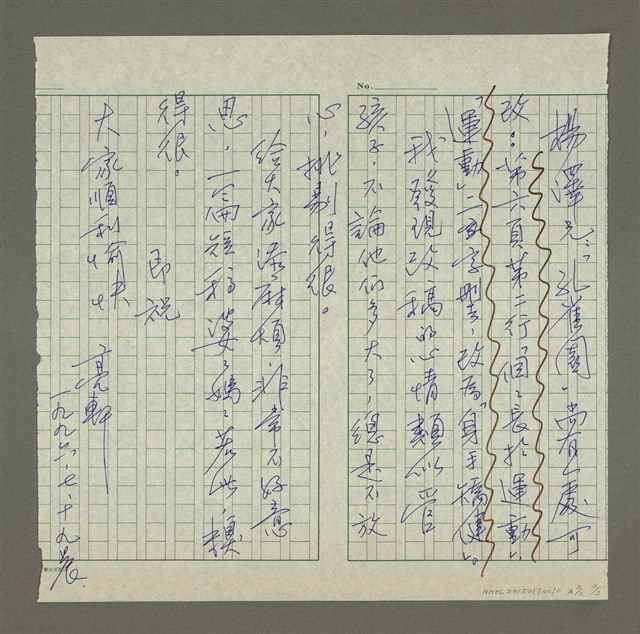 楊澤兄：「孔雀園」尚有一處可
改：第六頁第二行「個個長於運動」，
「運動」二字刪去，改為「身手矯健」。
我發現改稿的心情類似管
孩子，不論他們多大了，總是不放
心，挑剔得很。
給大家添麻煩，非常不好意
思，一篇短稿婆婆媽媽若此，糗
得很。
即祝
大家順利愉快
亮軒
一九九六．七．十九晨
No.
No.
NMTL20150170010